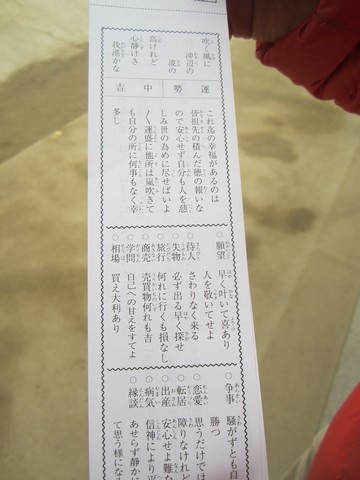 吹く風に
沖辺の
波の
高けれど
心静けき
我港かな
運勢 中吉
これ迄の幸福があるのは
皆祖先の積んだ徳の報いな
ので安心せず自分も人を慈
しみ世の為めに尽せばいよ
〱運盛に他所は嵐吹きて
も自分の所に何事もなく幸
多し
○願望 早く叶いて喜あり
人を敬いてせよ
○待人 さわりなく来る
○失物 必ず出る早く探せ
○旅行 何れに行くも損なし
○商売 売買物何れも吉
○学問 自己への甘えをすてよ
○相場 買え大利あり
○争事 騒がずとも自
勝つ
○恋愛 思うだけでは
○転居 障りなけれど
○出産 安心せよ難な
○病気 信神により平
○縁談 あせらず静かに
て思う様にな